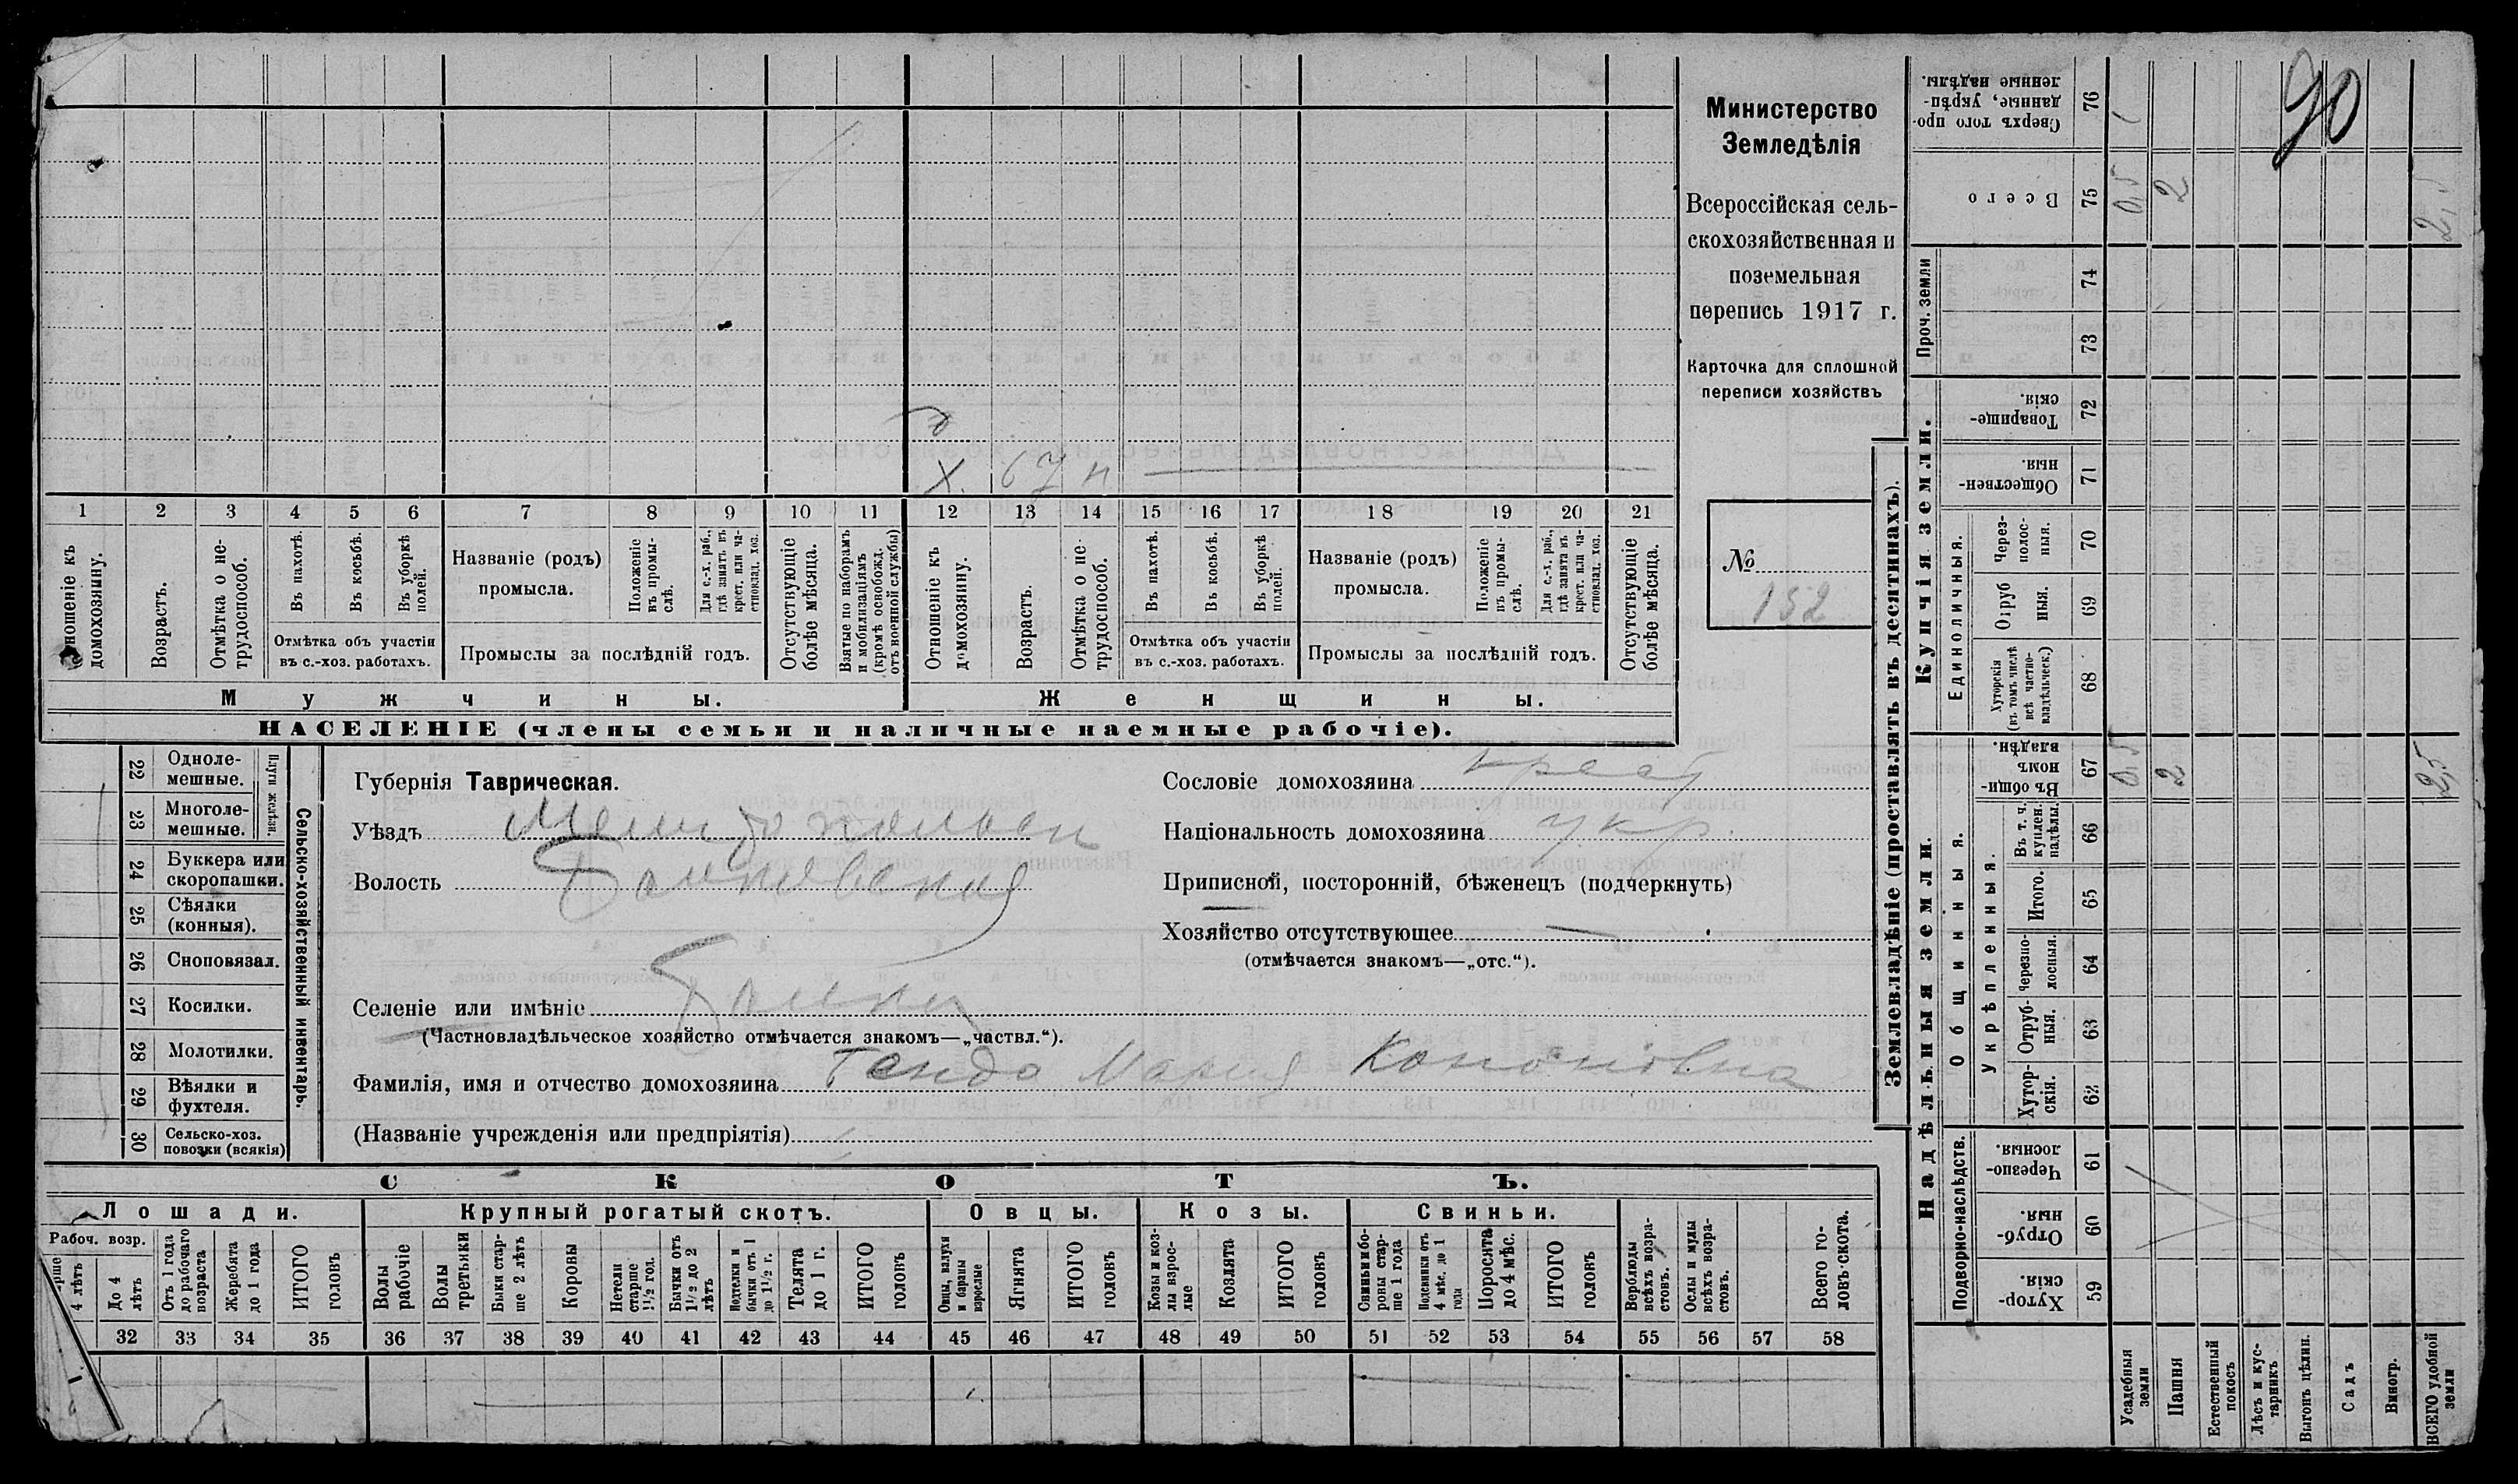 90
Министерство
Земледѣлія
Всероссійская сель-
скохозяйственная и
поземельная
перепись 1917 г.
Карточка для сплошной
переписи хозяйствъ
№ 152
х. 67 н
1 2 3 4 5 6 7 8 9 10 11 12 13 14 15 16 17 18 19 20 21
Отношеніе къ домохозяину.
Возрастъ.
Отмѣтка о не-трудоспособ.
Въ пахотѣ.
Въ косьбѣ.
Въ уборкѣ полей.
Отмѣтка объ участіи
въ с.-хоз. работахъ.
Названіе (родъ)
промысла.
Положеніе въ промы-слѣ.
Для с.-х. раб., гдѣ занятъ въ крест. или ча-стновлад. хоз.
Промыслы за послѣдній годъ.
Отсутствующіе болѣе мѣсяца.
Взятые по наборамъ и мобилизаціямъ (кромѣ освобожд. отъ военной службы)
Отношеніе къ домохозяину.
Возрастъ.
Отмѣтка о не-трудоспособ.
Въ пахотѣ.
Въ косьбѣ.
Въ уборкѣ полей.
Отмѣтка объ участіи
въ с.-хоз. работахъ.
Названіе (родъ)
промысла.
Положеніе въ промы-слѣ.
Для с.-х. раб., гдѣ занята въ крест. или ча-стновлад. хоз.
Промыслы за послѣдній годъ.
Отсутствующіе болѣе мѣсяца.
Мужчины. Женщины.
НАСЕЛЕНІЕ (члены семьи и наличные наемные рабочіе).
22 Одноле-мешные.
23 Многоле-мешные.
Плуги желѣзн.
24 Буккера или скоропашки.
25 Сѣялки (конныя).
26 Сноповязал.
27 Косилки.
28 Молотилки.
29 Вѣялки и фухтеля.
30 Сельско-хоз. повозки (всякія)
Сельско-хозяйственный инвентарь.
Губернія Таврическая.
Уѣздъ Мелитопольск
Волость Балковская
Селеніе или имѣніе Балки
(Частновладѣльческое хозяйство отмѣчается знакомъ—„частвл.“).
Фамилія, имя и отчество домохозяина Гендо Мария Кононовна
(Названіе учрежденія или предпріятія)
Сословіе домохозяина крест
Національность домохозяина укр.
Приписной, посторонній, бѣженецъ (подчеркнуть)
Хозяйство отсутствующее —
(отмѣчается знакомъ—„отс.“).
СКОТЪ.
Лошади. Крупный рогатый скотъ. Овцы. Козы. Свиньи.
Рабоч. возр.
4 лѣтъ
До 4 лѣтъ
Отъ 1 года до рабочаго возраста
Жеребята до 1 года
ИТОГО головъ
Волы рабочіе
Волы третьяки
Быки стар-ше 2 лѣтъ
Коровы
Нетели старше 1½ год.
Бычки отъ 1½ до 2 лѣтъ
Подтелки и бычки отъ 1 до 1½ г.
Телята до 1 г.
ИТОГО головъ
Овцы, валухи и бараны взрослые
Ягнята
ИТОГО головъ
Козы и коз-лы взрос-лые
Козлята
ИТОГО головъ
Свиньи и бо-ровы стар-ше 1 года
Подсвинки отъ 4 мѣс. до 1 года
Поросята до 4 мѣс.
ИТОГО головъ
Верблюды всѣхъ возра-стовъ.
Ослы и мулы всѣхъ возра-стовъ.
Всего го-ловъ скота.
32 33 34 35 36 37 38 39 40 41 42 43 44 45 46 47 48 49 50 51 52 53 54 55 56 57 58
Землевладѣніе (проставлять въ десятинахъ).
Купчія земли.
Надѣльныя земли.
Сверхъ того про-данные, укрѣп-ленные надѣлы. 76
Всего 75 0,5 2 2,5
Проч. земли 74 73
Товарище-скія. 72
Обществен-ныя. 71
Единоличныя.
Через-полос-ныя. 70
Отруб-ныя. 69
Хуторскія (въ томъ числѣ всѣ частно-владѣльческ.) 68
Общинныя.
Въ общи-номъ владѣн. 67 0,5 2 2,5
Укрѣпленныя.
Въ т. ч. куплен. надѣлы. 66
Итого. 65
Черезпо-лосныя. 64
Отруб-ныя. 63
Хутор-скія. 62
Подворно-наслѣдств.
Черезпо-лосныя 61
Отруб-ныя. 60
Хутор-скія. 59
Усадебныя земли
Пашня
Естественный покосъ
Лѣсъ и кус-тарникъ
Выгонъ цѣлин.
Садъ
Виногр.
ВСЕГО удобной земли